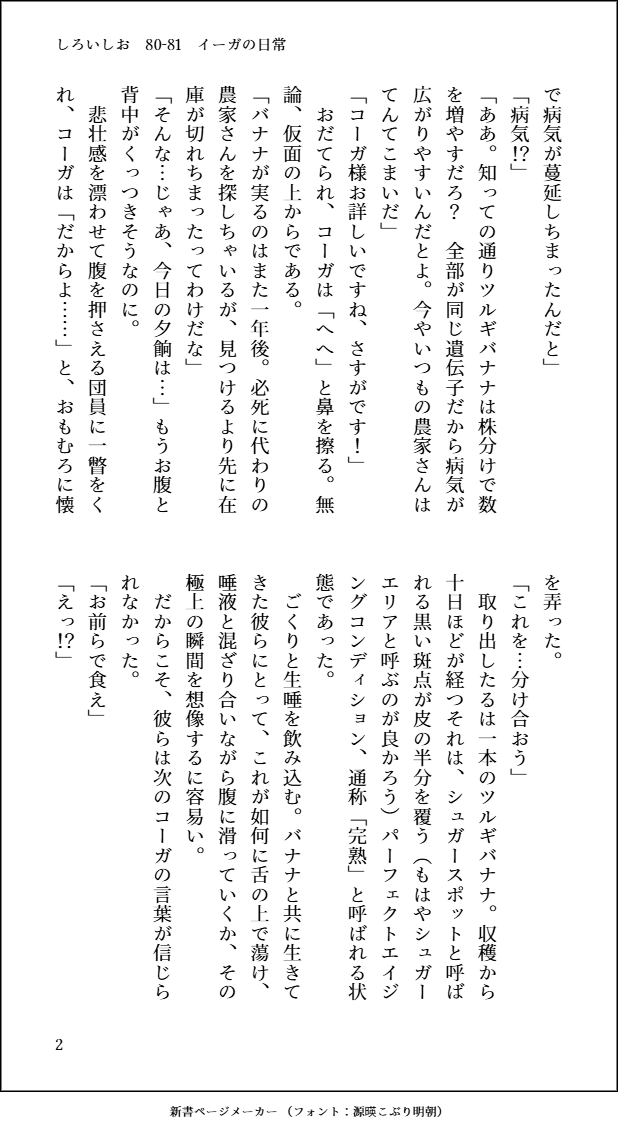 しろいしお　80-81　イーガの日常
で病気が蔓延しちまったんだと」
「病気!?」
「ああ。知っての通りツルギバナナは株分けで数
を増やすだろ？　全部が同じ遺伝子だから病気が
広がりやすいんだとよ。今やいつもの農家さんは
てんてこまいだ」
「コーガ様お詳しいですね、さすがです！」
　おだてられ、コーガは「へへ」と鼻を擦る。無
論、仮面の上からである。
「バナナが実るのはまた一年後。必死に代わりの
農家さんを探しちゃいるが、見つけるより先に在
庫が切れちまったってわけだな」
「そんな…じゃあ、今日の夕餉は…」もうお腹と
背中がくっつきそうなのに。
　悲壮感を漂わせて腹を押さえる団員に一瞥をく
れ、コーガは「だからよ……」と、おもむろに懐
を弄った。
「これを…分け合おう」
　取り出したるは一本のツルギバナナ。収穫から
十日ほどが経つそれは、シュガースポットと呼ば
れる黒い斑点が皮の半分を覆う（もはやシュガー
エリアと呼ぶのが良かろう）パーフェクトエイジ
ングコンディション、通称「完熟」と呼ばれる状
態であった。
　ごくりと生唾を飲み込む。バナナと共に生きて
きた彼らにとって、これが如何に舌の上で蕩け、
唾液と混ざり合いながら腹に滑っていくか、その
極上の瞬間を想像するに容易い。
　だからこそ、彼らは次のコーガの言葉が信じら
れなかった。
「お前らで食え」
「えっ!?」
2
新書ページメーカー（フォント：源暎こぶり明朝）